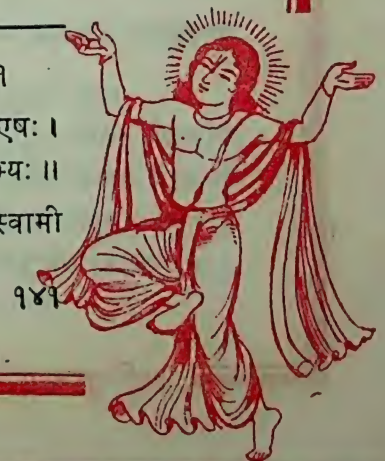 १
एषः।
म्यः॥
स्वामी
१४१